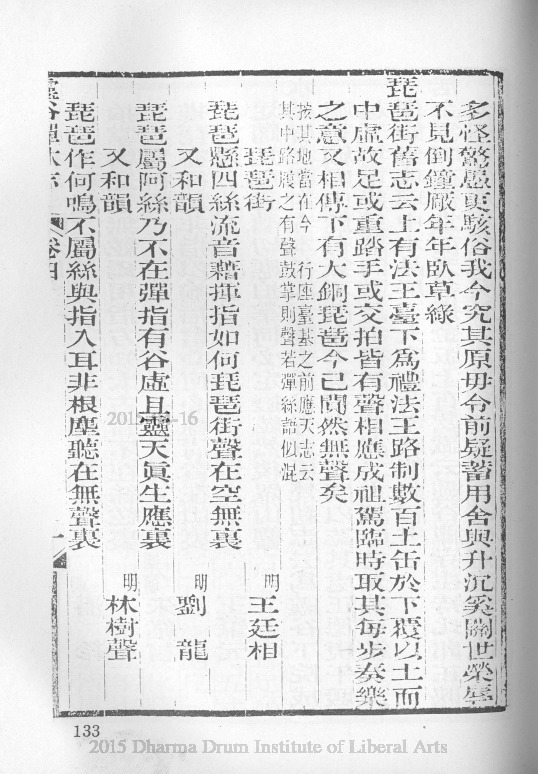 多怪驚愚更駭俗我今究其原毋令前疑蓄用舍與升沉奚關世榮辱
不見倒鐘厰年年臥草綠
琵琶街舊志云上有法王臺下為禮法王路制數百土缶於下覆以土而
中虛故足或重踏手或交拍皆有聲相應成祖駕臨時取其每步奏樂
之意又相傳下有大銅琵琶今已閴然無聲矣
按其地當在今 行座臺基之前應天志云
其中路履之有聲鼓掌則聲若彈絲語似混
琵琶街
明 王廷相
琵琶懸四絲流音藉揮指如何琵琶街聲在空無裏
又和韻
明 劉龍
琵琶屬阿絲乃不在彈指有谷虛且靈天眞生應裏
又和韻
明 林樹聲
琵琶作何鳴不屬絲與指入耳非根塵聽在無聲裏
靈谷禪林志 卷四
133
2015 Dharma Drum Institute of Liberal Arts